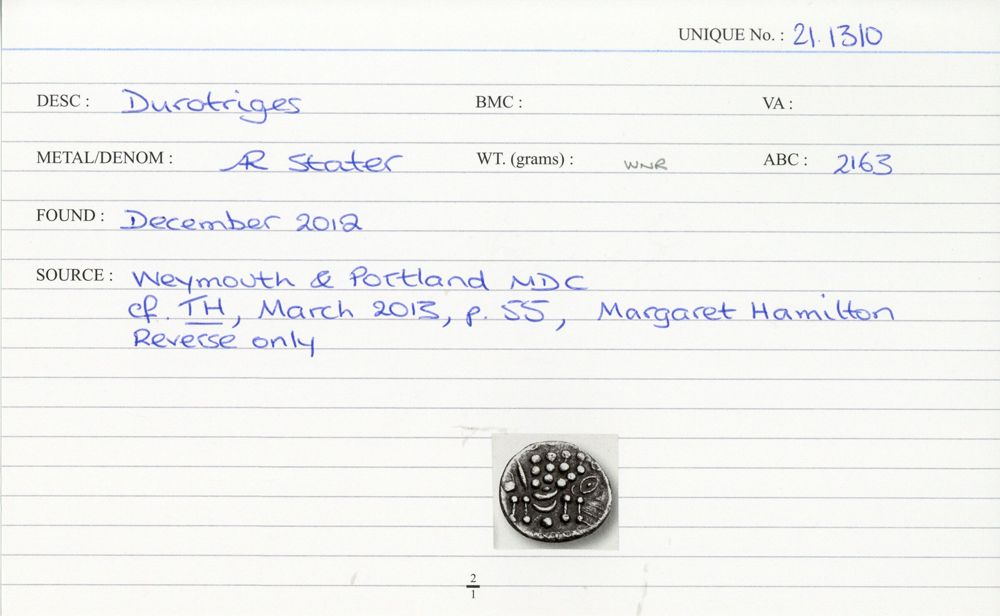 UNIQUE No. : 21.1310
DESC : Durotriges BMC : VA :
METAL/DENOM : AR Stater WT. (grams) : WNR ABC : 2163
FOUND : December 2012
SOURCE : Weymouth & Portland MDC
cf. TH, March 2013, p. 55, Margaret Hamilton
Reverse only
2
1